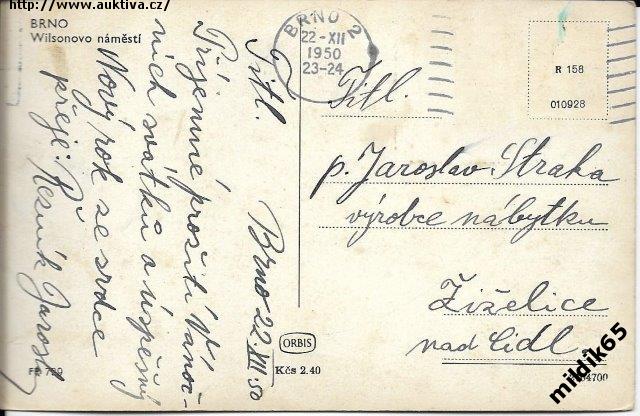 http://www.auktiva.cz/
BRNO
Wilsonovo náměstí
Titl.
Brno 22.XII.50
Příjemné prožití Vánoč-
ních svátků a úspěšný
Nový rok ze srdce
přeje: Řezník Jarosl.
BRNO 2
22-XII
1950
23-24
R 158
010928
Titl.
p. Jaroslav Straka
výrobce nábytku
Žiželice
nad Cidl.
ORBIS
Kčs 2.40
mildik65